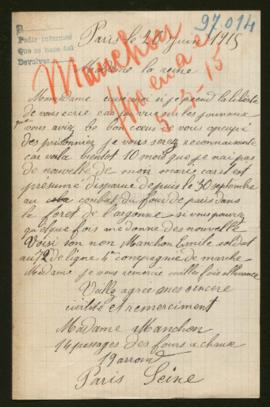 97.014
Pedir informes
Que se hace del
Devolver a
Paris le 20 Juin 1915
Manchon
Madame la reine
Alemania
5-7-15
Madame excuse moi si je prend la liberté
de vous écrire car j'ai vu sur les journaux
vous aviez bo bon cœur de vous occupé
des prisonniez je vous serez reconnaissante
car voila bientot 10 mois que je nait pas
de nouvelle de mon marie car il est
présumé disparue depuis le 30 septembre
au combat du four de paris dans
la foret de l'argonne si vous pourez
quelque fois me donné des nouvelle
Voisi son non Manchon Emile soldat
au 72 de ligne 4e compagnie de marche
Madame je vous remercie mille fois d'havance
Veillez agrée mes sincere
civilité et remerciment
Madame Manchon
14 passages des fours a chaux
19 arrond
Paris Seine